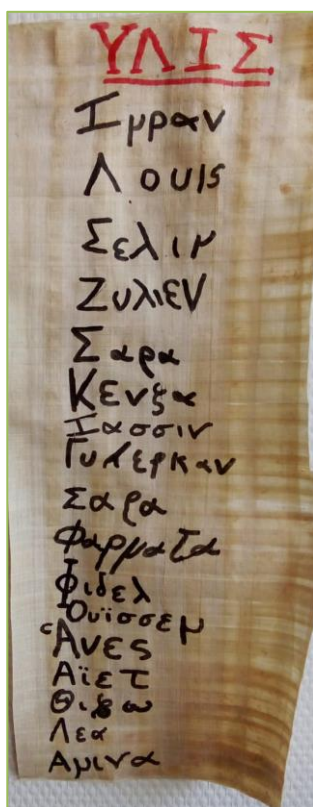 ΥΛΙΣ
Ιμραν
Λουις
Σελιμ
Ζυλιεν
Σαρα
Κενζα
Ιασσιν
Γυλερκαν
Σαρα
Φαρματα
Φιδελ
Ουϊσσεμ
Ἁνες
Αϊετ
Λεα
Αμινα